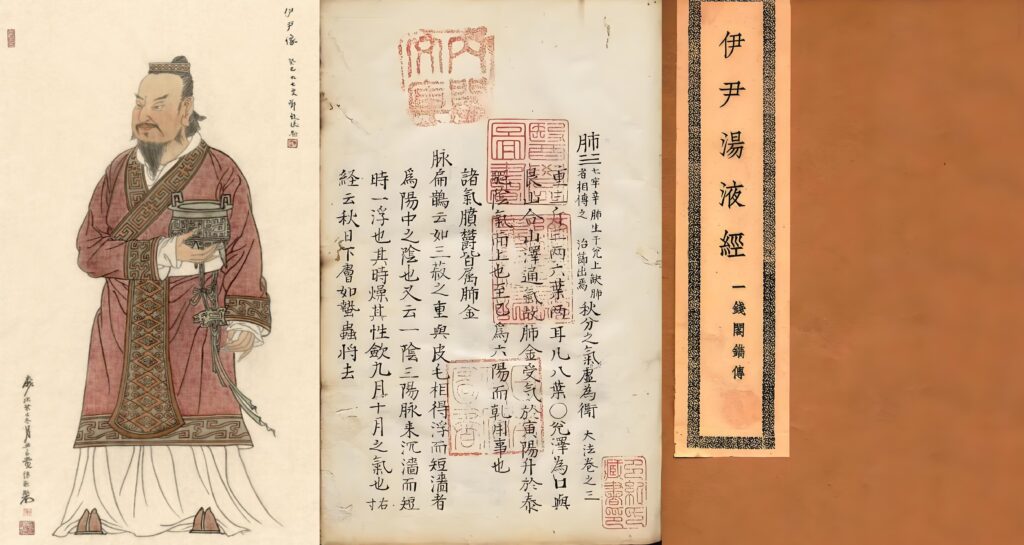 伊尹像
肺三
七牢辛肺生于兌上缺肺
者相傳之 治節出焉
秋分之氣虛為衛 大法卷之三
重 兩六葉兩耳八八葉〇兌澤為口與
艮上合山澤通氣故肺金受氣於寅陽升於泰
陰氣而上也至巳為六陽而乾用事也
諸氣膹鬱皆屬肺金
脉扁鵲云如三菽之重與皮毛相得浮而短濇者
為陽中之陰也又云一陰三陽脉来沉濇而短
時一浮也其時燥其性斂九月十月之氣也
経云秋日下膚如蟄蟲將去
伊尹湯液經
一錢閣鐫傳